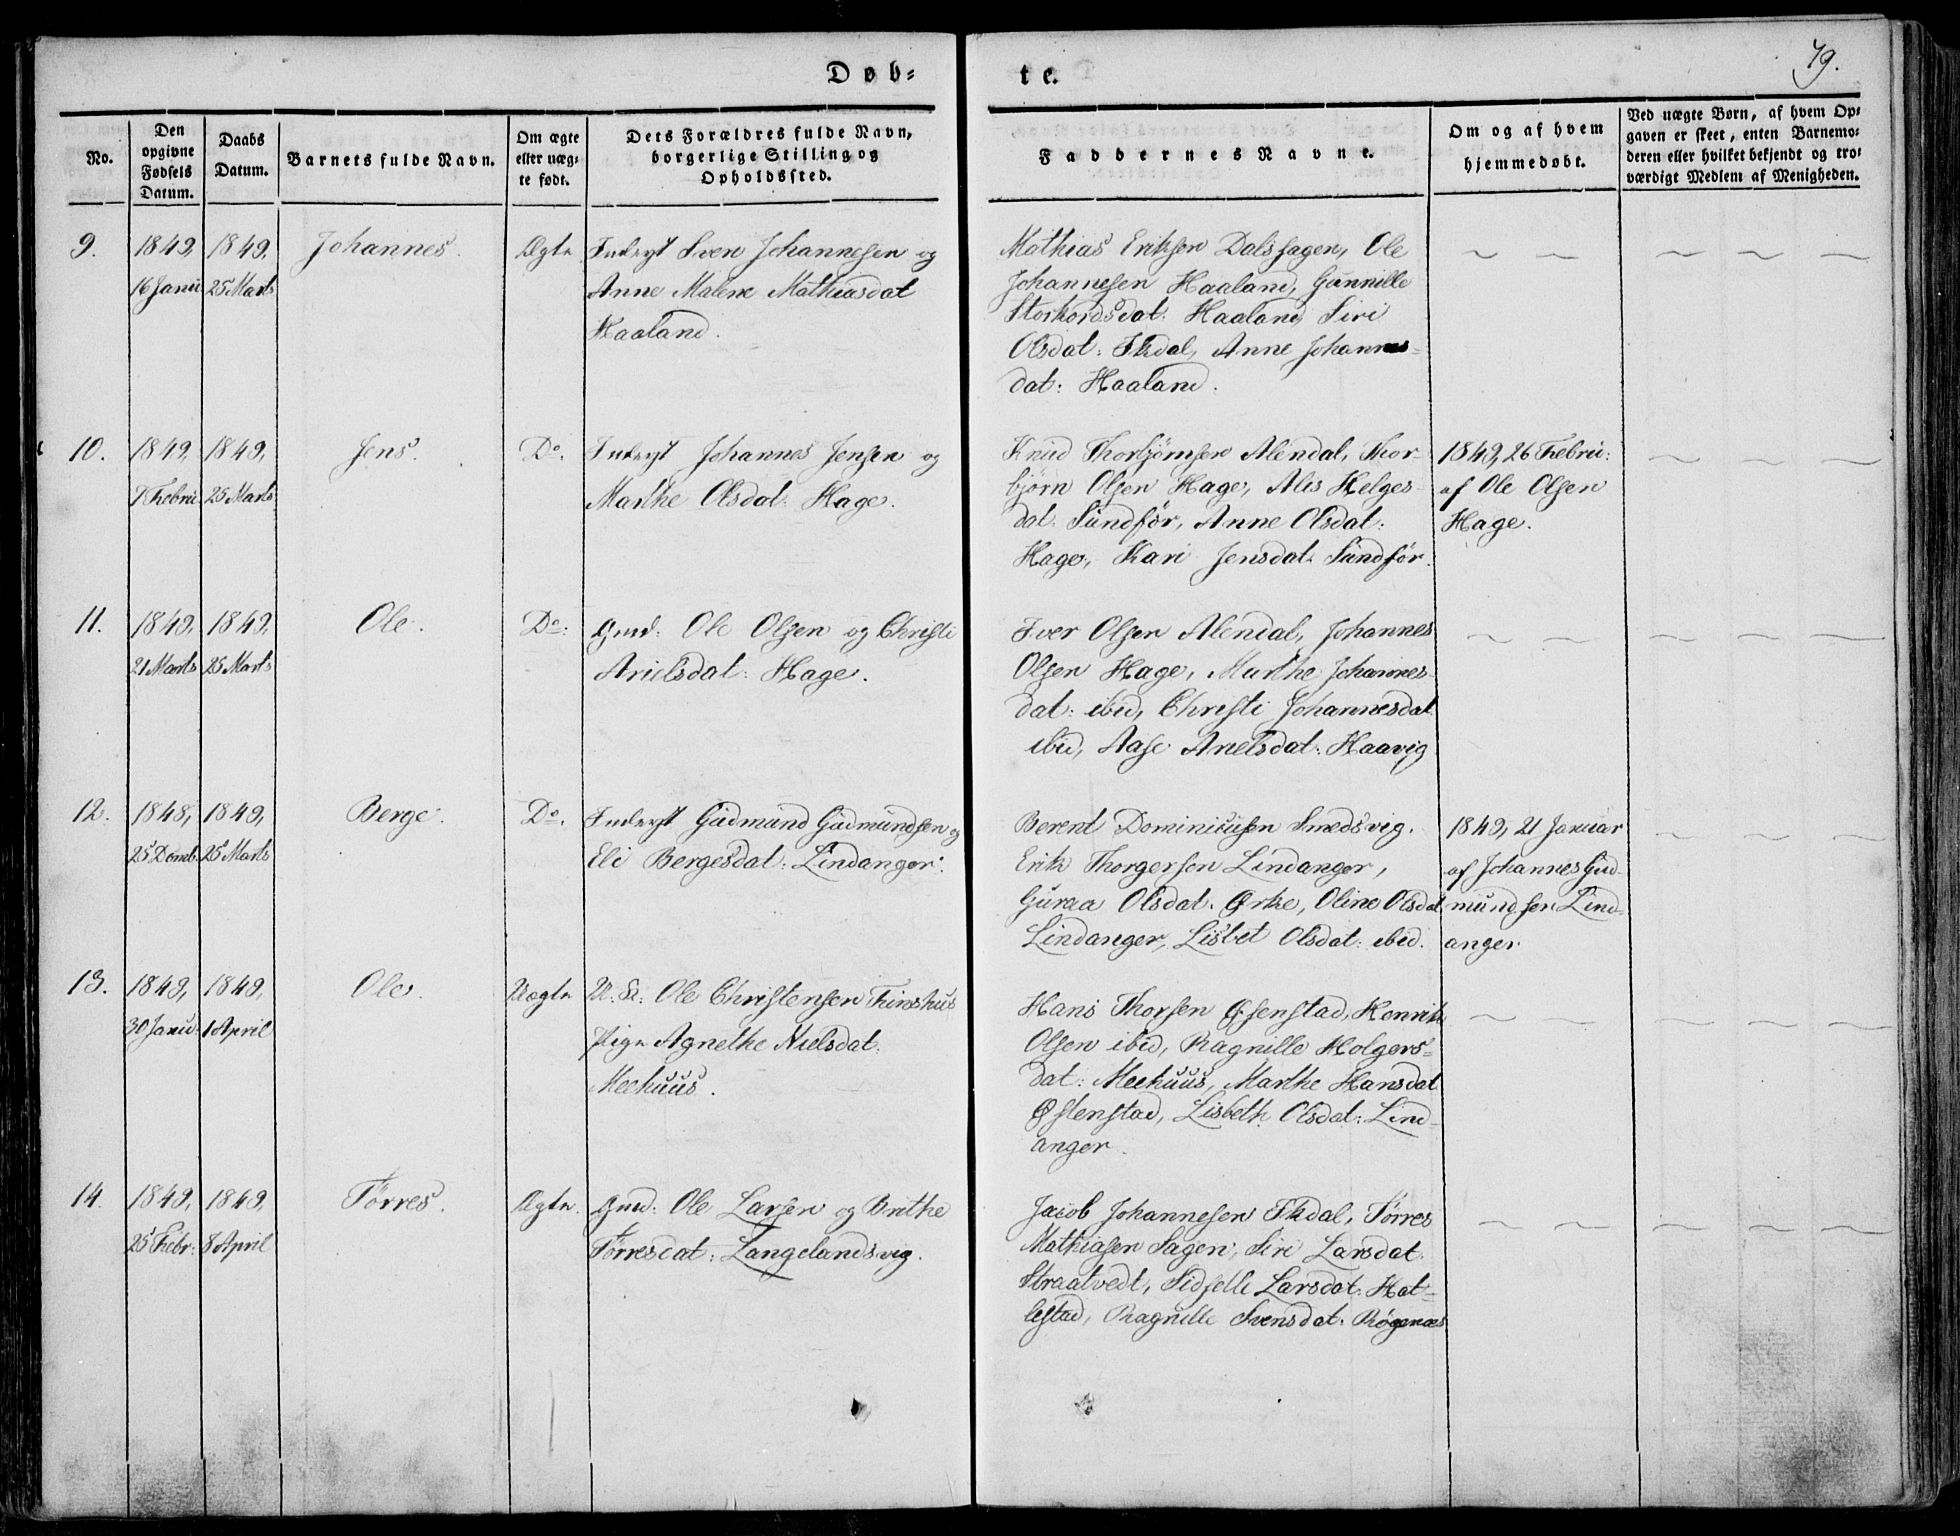 79.
Døb-
te.
No.
Den
opgivne
Fødsels
Datum.
Daabs
Datum.
Barnets fulde Navn.
Om ægte
eller uæg-
te født.
Dets Forældres fulde Navn,
borgerlige Stilling og
Opholdssted.
Faddernes Navne.
Om og af hvem
hjemmedøbt.
Ved uægte Børn, af hvem Op-
gaven er skeet, enten Barnemo-
deren eller hvilket bekjendt og tro-
værdigt Medlem af Menigheden.
9.
1849,
16 Janu
1849,
25 Marts
Johannes.
Ægte
Inderst Sven Johannesen og
Anne Malene Mathiasdat
Haaland.
Mathias Eriksen Dalssagen, Ole
Johannesen Haaland, Gunnille
Storkordsdat: Haaland, Siri
Olsdat: Ekdal, Anne Johannes-
dat: Haaland.
10.
1849,
7 Febru
1849,
25 Marts
Jens.
Do.
Inderst Johannes Jensen og
Marthe Olsdat: Hage.
Knud Thorbjørnsen Alendal, Thor-
bjørn Olsen Hage, Alis Helges-
dat. Sundfør, Anne Olsdat:
Hage, Kari Jensdat. Sundfør.
1849, 26 Febru:
af Ole Olsen
Hage.
11.
1849,
21 Marts
1849,
25 Marts
Ole.
Do:
Gmd: Ole Olsen og Christi
Arielsdat: Hage.
Iver Olsen Alendal, Johannes
Olsen Hage, Marthe Johannes-
dat: ibid, Christi Johannesdat
ibid, Aase Anelsdat: Haavig
12.
1848,
25 Decmb.
1849,
25 Marts
Berge.
Do.
Inderst Gudmund Gudmundsen og
Eli Bergesdat: Lindanger.
Berent Dominicusen Smedsvig.
Erik Thorgersen Lindanger,
Guraa Olsdat. Ørke, Oline Olsdat
Lindanger, Lisbet Olsdat: ibid.
1849, 21 Januar
af Johannes Gud-
mundsen Lind-
anger
13.
1849,
30 Janu:
1849,
1 April
Ole.
Uægte
U. K: Ole Christensen Finshus
Pige Agnethe Nielsdat.
Meehuus.
Hans Thorsen Østenstad, Henrik
Olsen ibid, Ragnille Holgers-
dat: Meehuus, Marthe Hansdat
Østenstad, Lisbeth Olsdat: Lind-
anger.
14.
1849,
25 Febr:
1849,
8 April
Tørres.
Ægte.
Gmd: Ole Larsen og Brithe
Tørresdat: Langelandsvig.
Jacob Johannesen Ekdal, Tørres
Mathiasen Sagen, Siri Larsdat.
Straatvedt, Sidselle Larsdat: Hat-
lestad, Ragnille Svensdat. Røgenæs